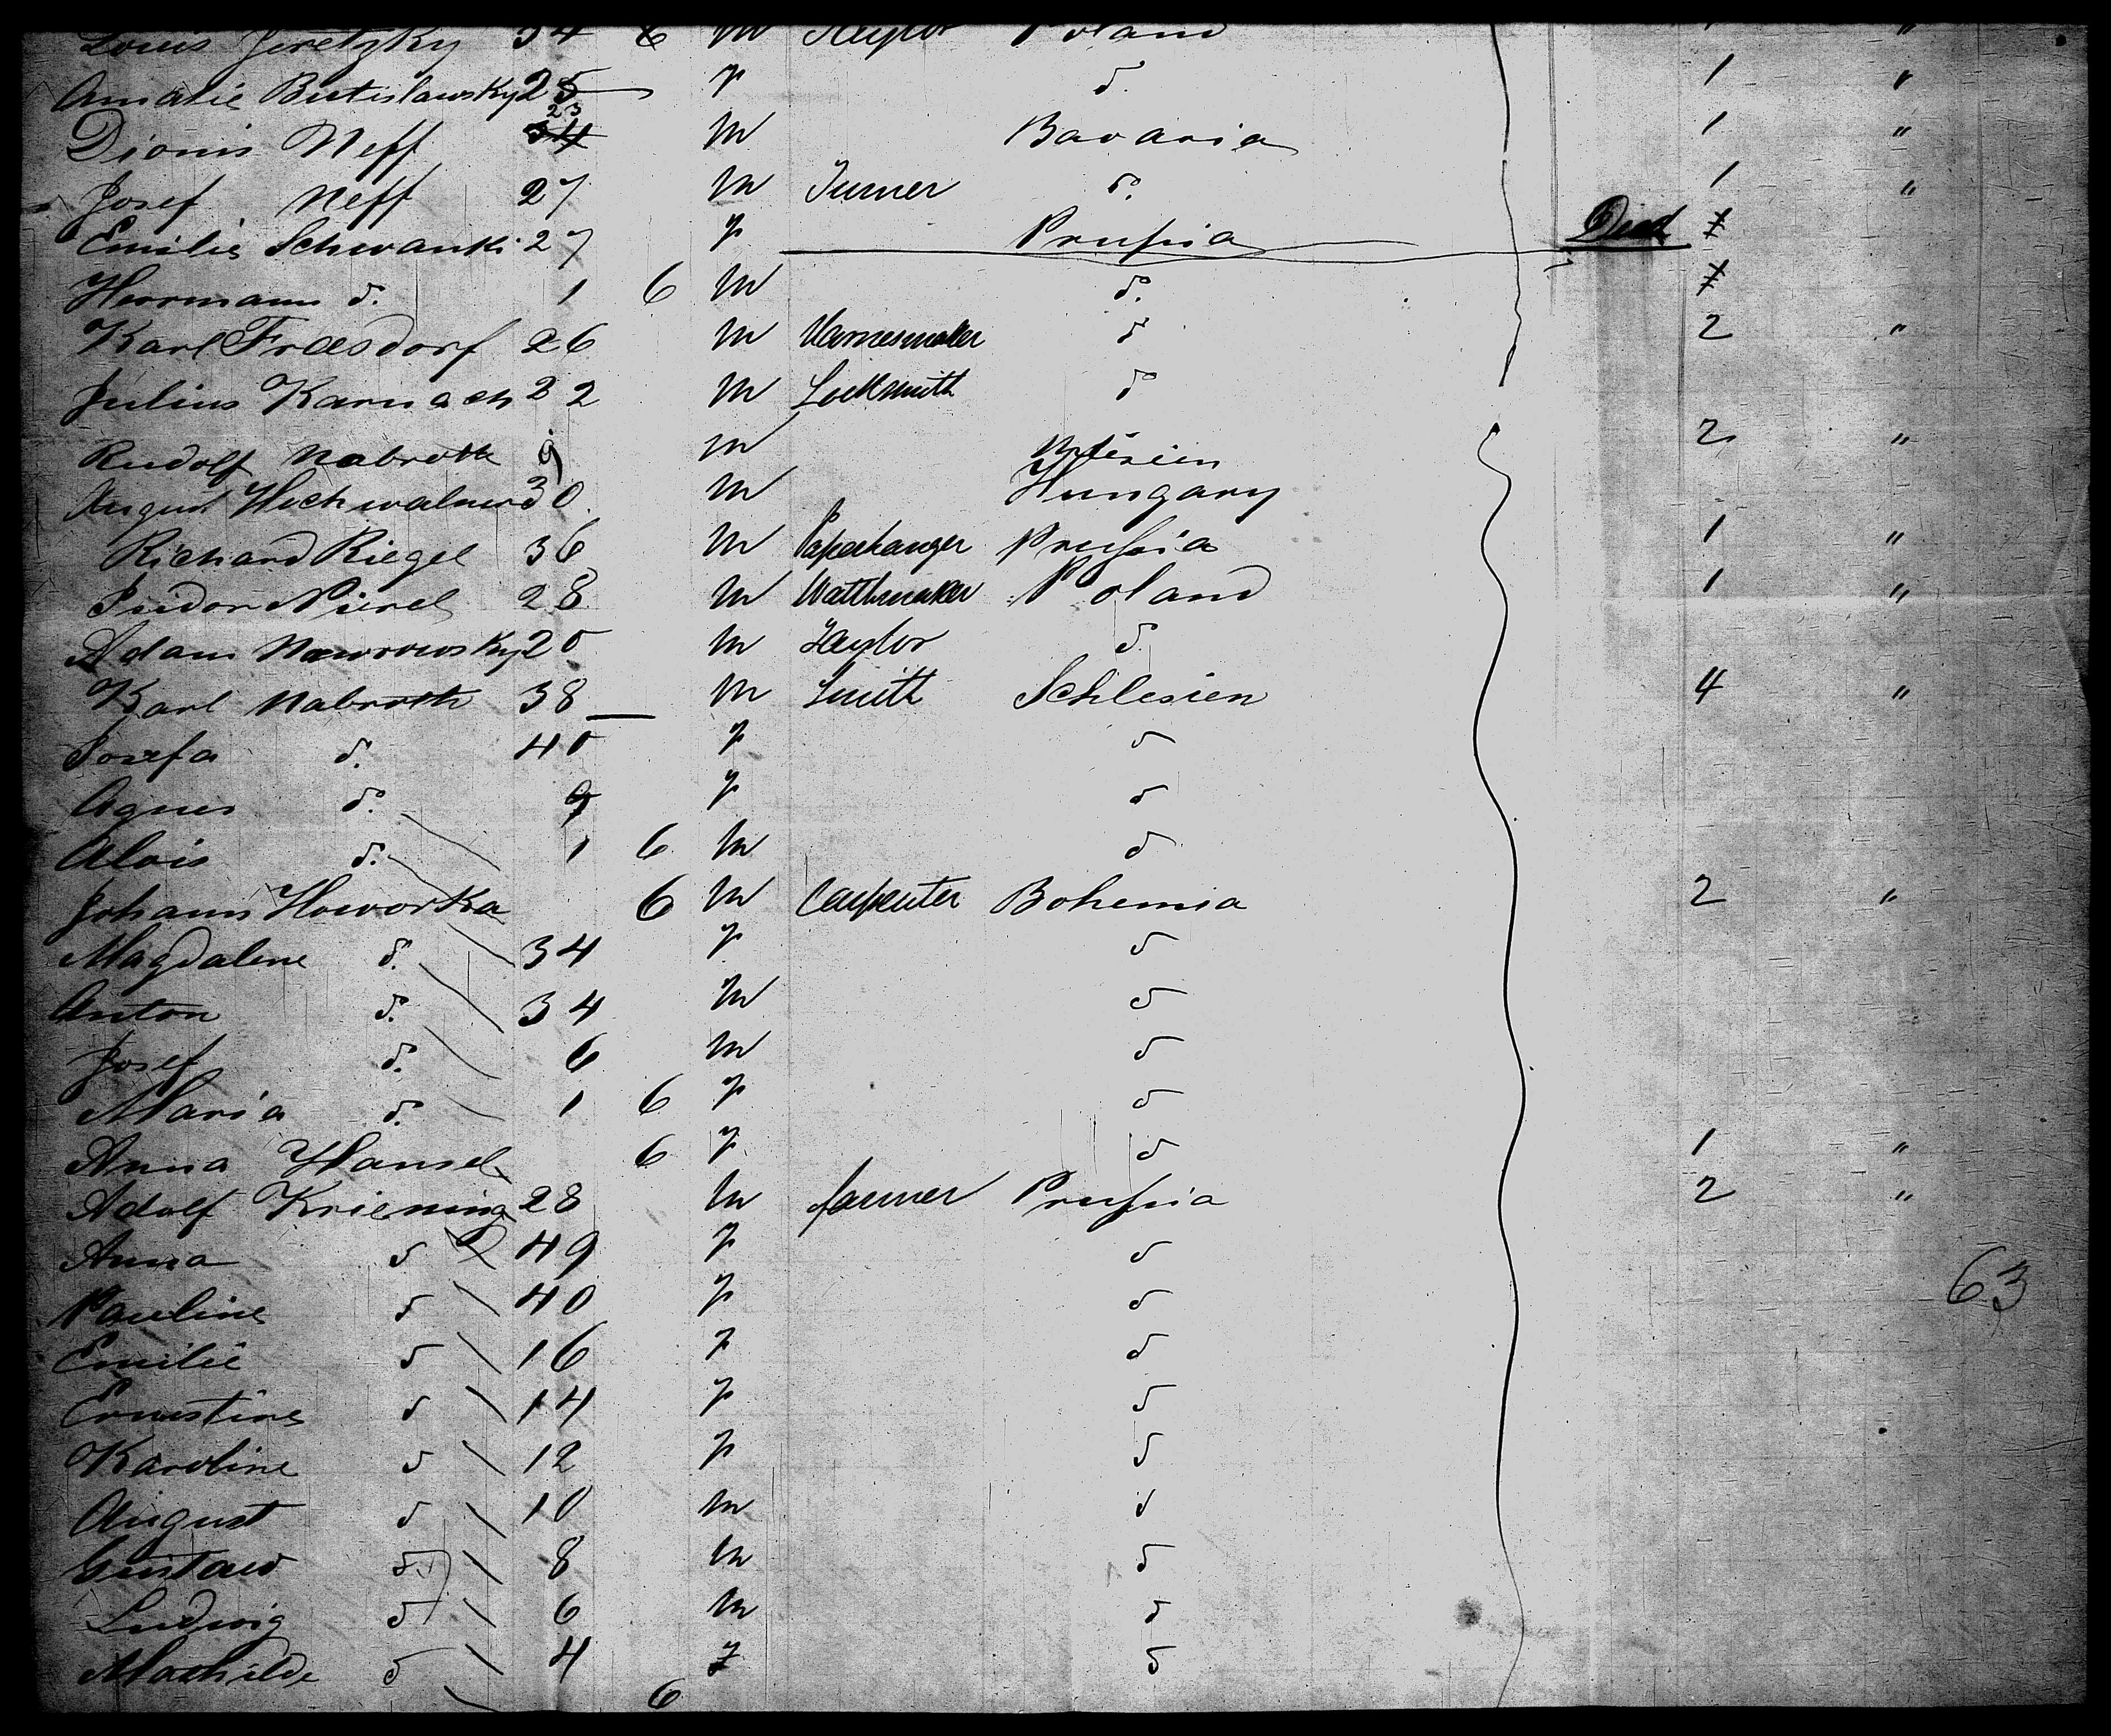 Louis Jeretzky 34 6 M Taylor Poland 1 "
Amalie Butislawsky 25 F do. 1 "
Dionis Neff 34 23 M Bavaria 1 "
Josef Neff 27 M Turner do. 1 "
Emilie Schwanki 27 F Prussia Died 1
Herrmann do. 1 6 M do. 1
Karl Fraesdorf 26 M Harnesmaker do 2 "
Julius Karnach 22 M Locksmith do
Rudolf Nabroth 9 M 2 "
August Hochwalner 30 M Hungary
Richard Riegel 36 M Paperhanger Prussia 1 "
Isidor 28 M Watthmaker Poland 1 "
Adam Nawrowsky 20 M Taylor do.
Karl Nabroth 38 M Smith Schlesien 4 "
Josefa do. 40 F do
Agnes do. 9 F do
Alois do. 1 6 M do
Johann Howorka 6 M Carpenter Bohemia 2 "
Magdalene do. 34 F do
Anton do. 34 M do
Josef do. 6 M do
Maria do. 1 6 F do
Anna Hansel 6 F do 1 "
Adolf Kriening 28 M farmer Prussia 2 "
Anna do 49 F do
63
Pauline do 40 F do
Emilie do 16 F do
Ernestine do 14 F do
Karoline do 12 F do
August do 10 M do
Gustaw do 8 M do
Ludwig do 6 M do
Mathilde do 4 F do
6